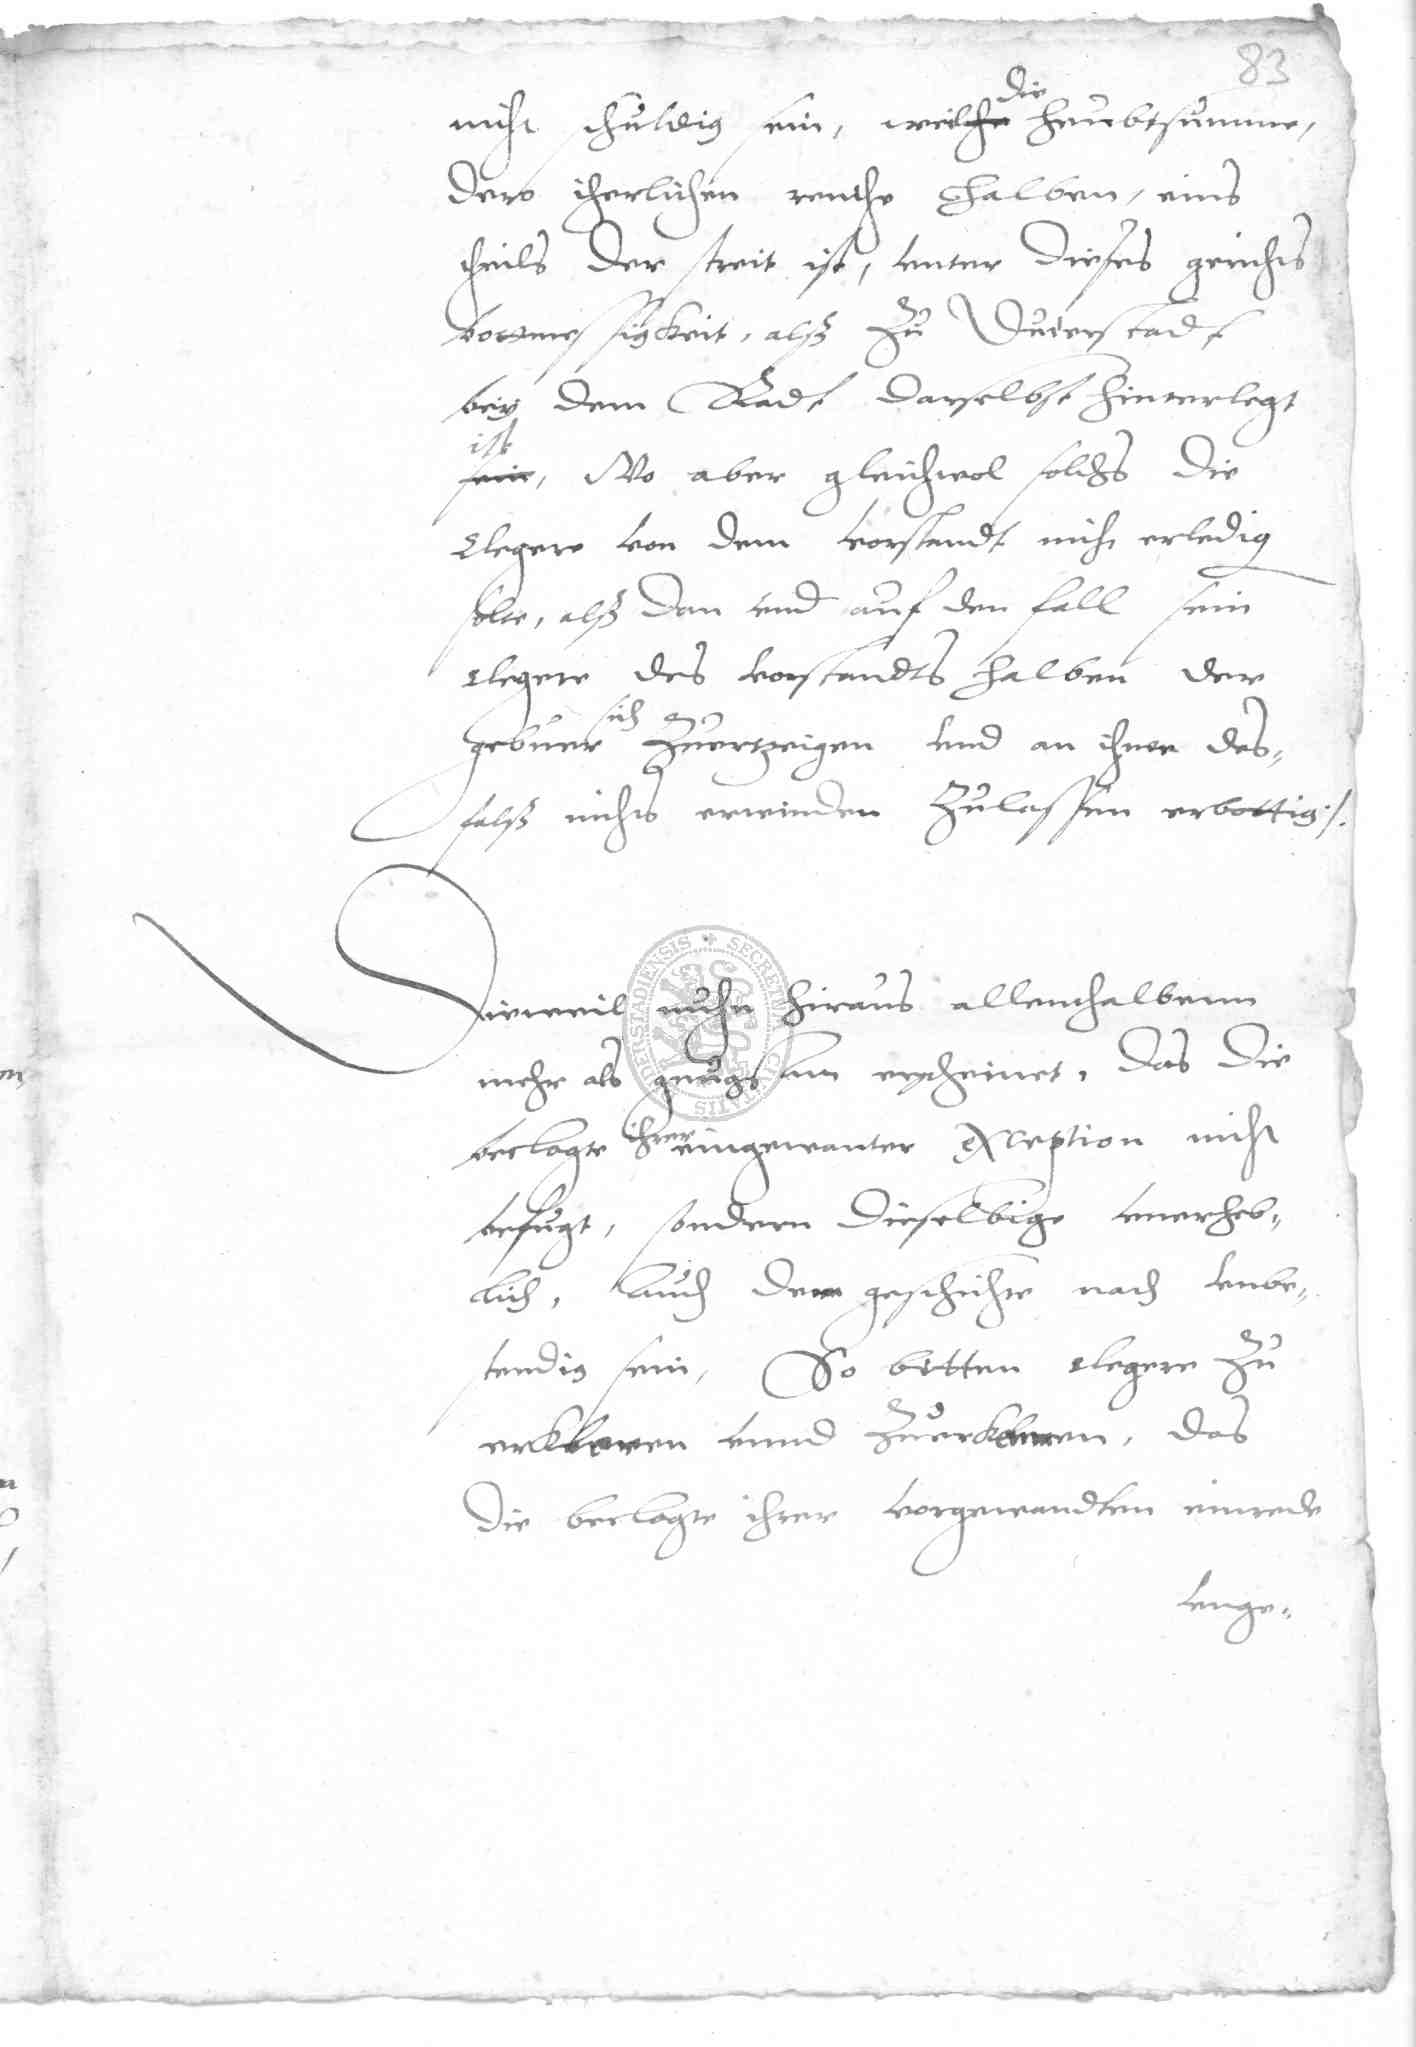 83
nicht schuldig sein, weil die heubtsumme,
dero iherlichen renthe halben, eins
theils der streit ist, unter dieses gerichts
bottmessigkeit, alß zu Duderstadt
bey dem Radt darselbst hinterlegt
ist, Wo aber gleichwol solchs die
clegere von dem vorstandt nicht erledig
solte, alß dan und auf den fall sein
clegere des vorstandts halben der
gebuer sich zuertzeigen und an ihnen des-
falß nichts erwinden zulassen erbottig /.
Dieweil nuhn hiraus allenthalbenn
mehr als gnugsam erscheinet, das die
beclagte ihrer eingewanter exception nicht
befugt, sondern dieselbige unerheb-
lich, auch der geschichte nach unbe-
stendig sein, So bitten clegere zu
erkleren unnd zuerkennen, das
die beclagte ihrer vorgewandten einrede
unge-
SECRETUM CIVITATIS DUDERSTADIENSIS